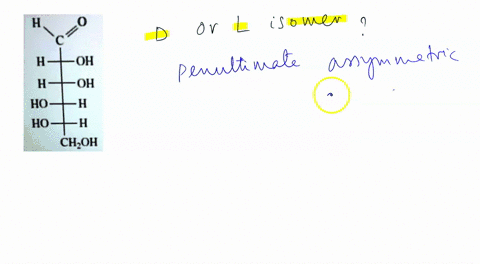 H O
C
H OH
H OH
HO H
HO H
CH₂OH
D or L isomer ?
penultimate assymmetric